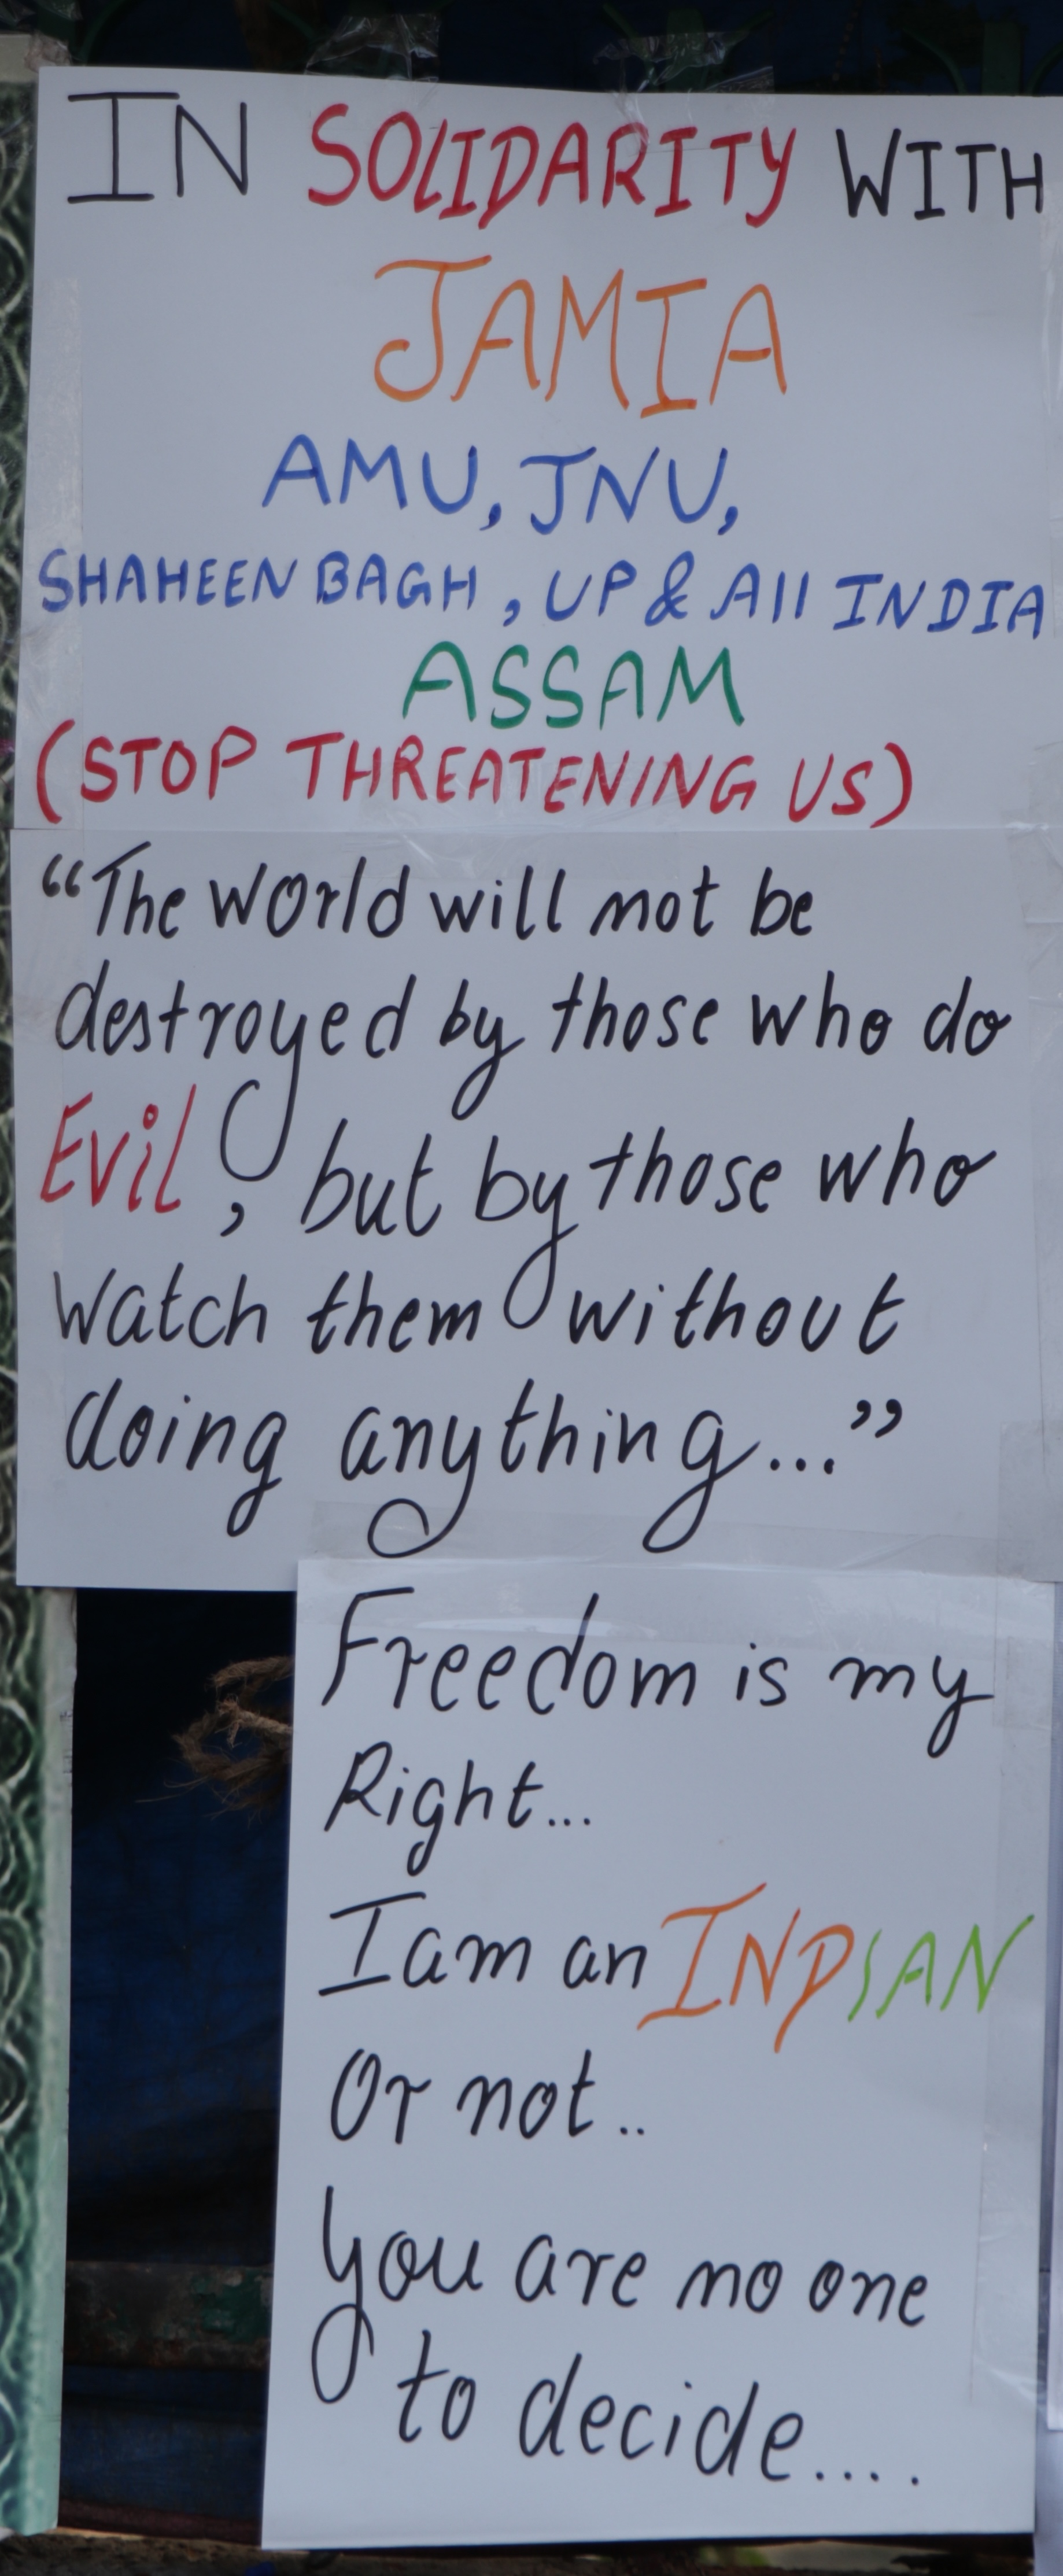 IN SOLIDARITY WITH
JAMIA
AMU, JNU,
SHAHEEN BAGH, UP & All INDIA
ASSAM
(STOP THREATENING US)
“The World will not be
destroyed by those who do
Evil, but by those who
Watch them without
doing anything...”
Freedom is my
Right...
I am an INDIAN
Or not..
You are no one
to decide....